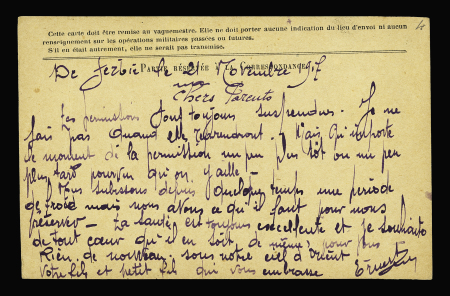 4
Cette carte doit être remise au vaguemestre. Elle ne doit porter aucune indication du lieu d'envoi ni aucun
renseignement sur les opérations militaires passées ou futures.
S'il en était autrement, elle ne sera pas transmise.
PARTIE RÉSERVÉE A LA CORRESPONDANCE
De Serbie le 21 Novembre 1917
Chers Parents
Les permissions sont toujours suspendues. Je ne
sais pas quand elle reprendront. Mais qu'importe
le moment de la permission un peu plus tôt ou un peu
plus tard pourvu qu'on y aille.
Nous subissons depuis quelques temps une période
de froid mais nous avons ce qu'il faut pour nous
préserver - La santé est toujours excellente et je souhaite
de tout cœur qu'il en soit de même pour vous
Rien de nouveau sous notre ciel d'orient
Votre fils et petit fils qui vous embrasse Ernest